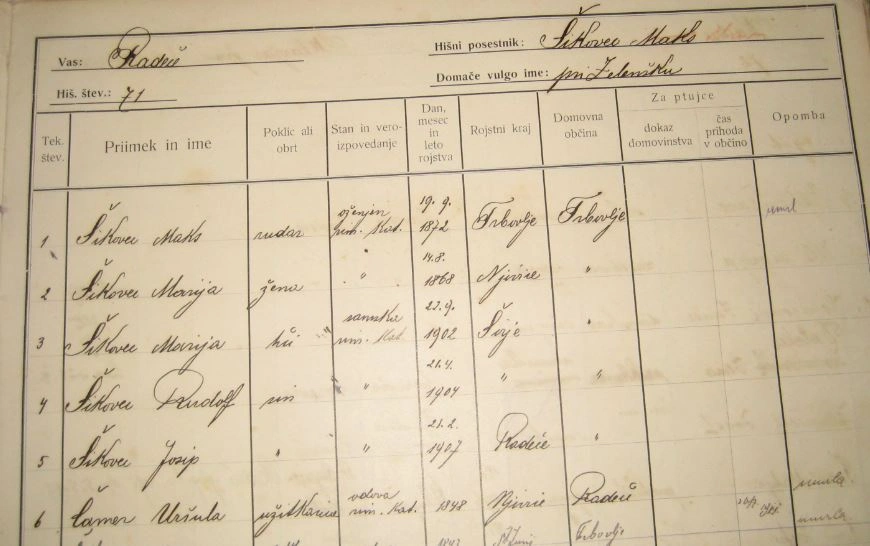 Vas: Radeče
Hišni posestnik: Šikovec Maks
Domače vulgo ime: pri Zelenšku
Hiš. štev.: 71
Tek. štev.
Priimek in ime
Poklic ali obrt
Stan in vero-izpovedanje
Dan, mesec in leto rojstva
Rojstni kraj
Domovna občina
Za ptujce
dokaz domovinstva
čas prihoda v občino
Opomba
1 Šikovec Maks rudar oženjen rim. kat. 19. 9. 1872 Trbovlje Trbovlje umrl
2 Šikovec Marija žena " 14. 8. 1868 Njivice "
3 Šikovec Marija hči samska rim. kat. 22. 9. 1902 Širje "
4 Šikovec Rudolf sin " 21. 4. 1904 " "
5 Šikovec Josip " " 21. 2. 1907 Radeče "
6 Uršula užitkarica vdova rim. kat. 1848 Njivice Radeče umrla
umrla
Trbovlje